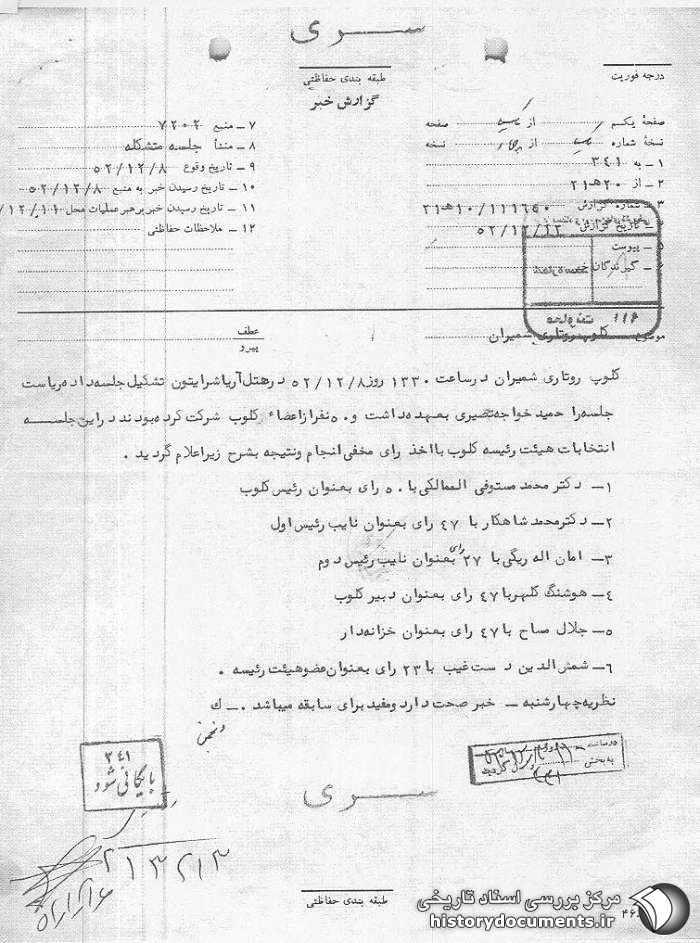 سری
درجه فوریت
طبقه بندی حفاظتی
گزارش خبر
صفحهٔ یکم از صفحه
نسخهٔ شماره از نسخه
۱ – به ۳۴۱
۲ – از ۲۰ هـ ۲۱
۳ – شماره گزارش ۲۱هـ ۱۰/۱۱۱۶۴۰
تاریخ گزارش ۵۲/۱۲/۱۳
پیوست
گیرندگان خبر
۷ – منبع ۷۲۰۲
۸ – منشأ جلسه متشکله
۹ – تاریخ وقوع ۵۲/۱۲/۸
۱۰ – تاریخ رسیدن خبر به منبع ۵۲/۱۲/۸
۱۱ – تاریخ رسیدن خبر برهبر عملیات محل /۱۲/۱۱
۱۲ – ملاحظات حفاظتی
۱۱۶
موضوع کلوپ روتاری شمیران
عطف
پیرو
کلوپ روتاری شمیران درساعت ۱۳۳۰ روز ۵۲/۱۲/۸ درهتل آریاشرایتون تشکیل جلسه داده ریاست
جلسه را حمید خواجه نصیری بعهده داشت و ۵۰ نفر از اعضاء کلوب شرکت کرده بودند دراین جلسه
انتخابات هیئت رئیسه کلوب با اخذ رای مخفی انجام و نتیجه بشرح زیر اعلام گردید .
۱ – دکتر محمد مستوفی الممالکی با ۵۰ رای بعنوان رئیس کلوب
۲ – دکتر محمد شاهکار با ۴۷ رای بعنوان نایب رئیس اول
۳ – امان اله ریگی با ۲۷ رای بعنوان نایب رئیس دوم
۴ – هوشنگ کلهر با ۴۷ رای بعنوان دبیر کلوب
۵ – جلال مساح با ۴۷ رای بعنوان خزانه دار
۶ – شمس الدین دست غیب با ۲۳ رای بعنوان عضو هیئت رئیسه .
نظریه چهارشنبه – خبر صحت دارد و مفید برای سابقه میباشد . – ک
۳۴۱
بایگانی شود
سری
۲۱۳۲۱۳
طبقه بندی حفاظتی
مرکز بررسی اسناد تاریخی
historydocuments.ir